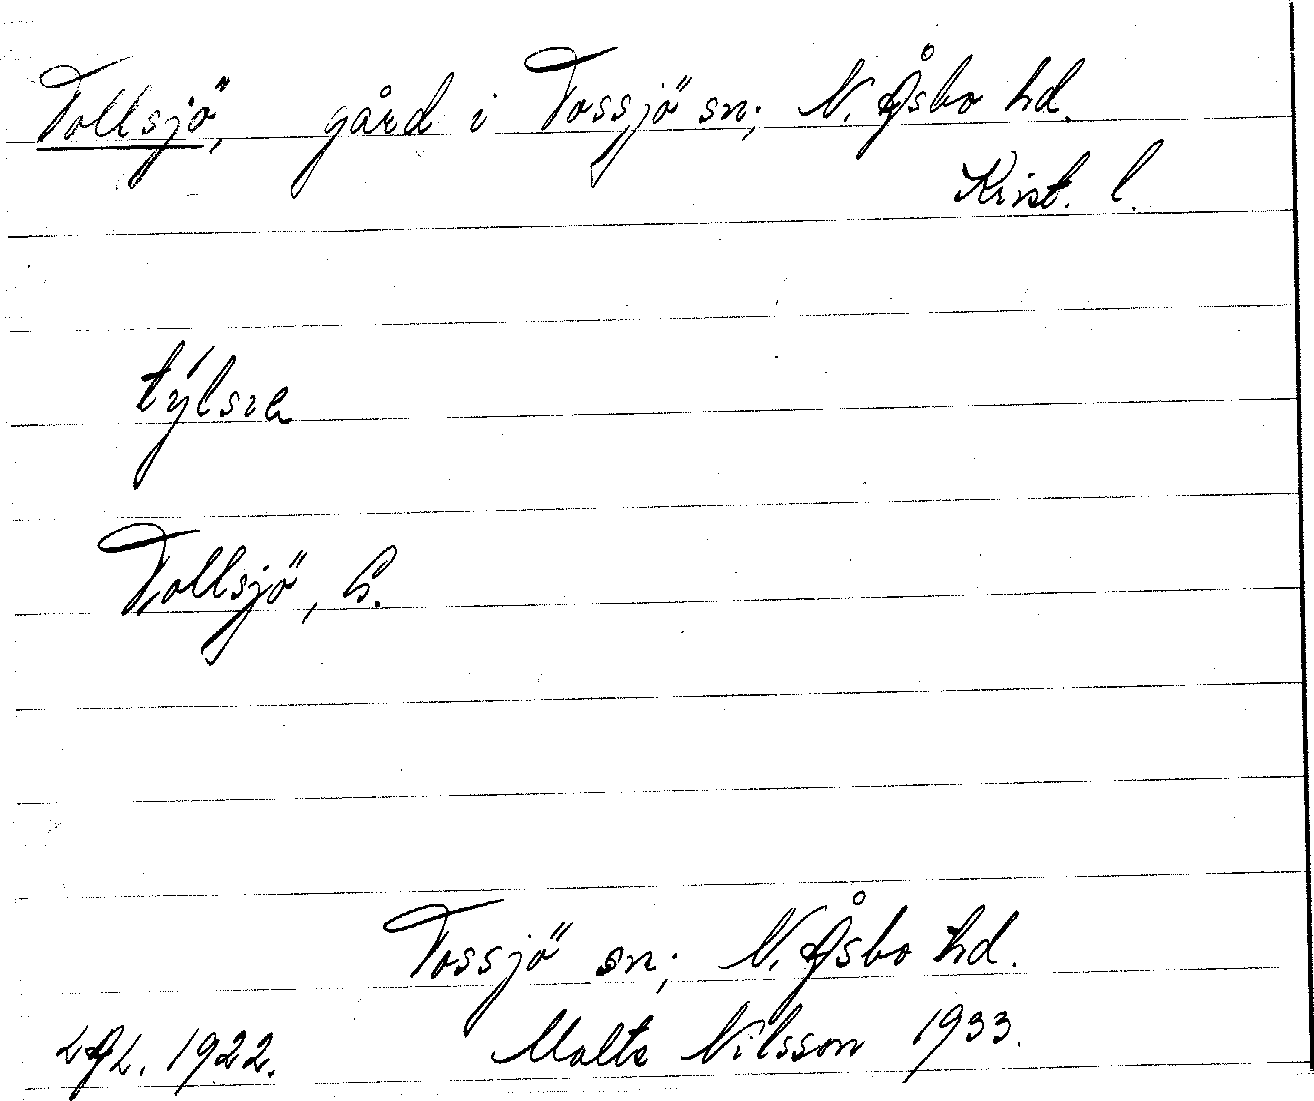 Tollsjö, gård i Tossjö sn; N. Åsbo hd.
Krist. l.
Tollsjö, G.
Tossjö sn; N. Åsbo hd.
LAL. 1922. Malte Nilsson 1933.